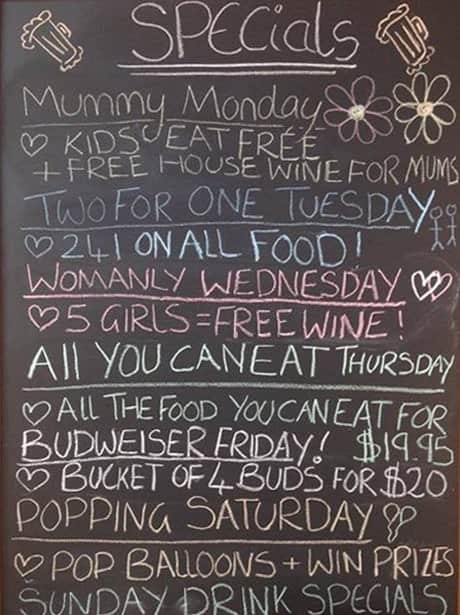 SPECials
Mummy Monday
KIDS EAT FREE
+ FREE HOUSE WINE FOR MUMS
TWO FOR ONE TUESDAY
241 ON ALL FOOD!
WOMANLY WEDNESDAY
5 GIRLS = FREE WINE!
All YOU CAN EAT THURSDAY
All THE FOOD YOU CAN EAT FOR
$19.95
BUDWEISER FRIDAY!
BUCKET OF 4 BUDS FOR $20
POPPING SATURDAY
POP BALLOONS + WIN PRIZES
SUNDAY DRINK SPECIALS